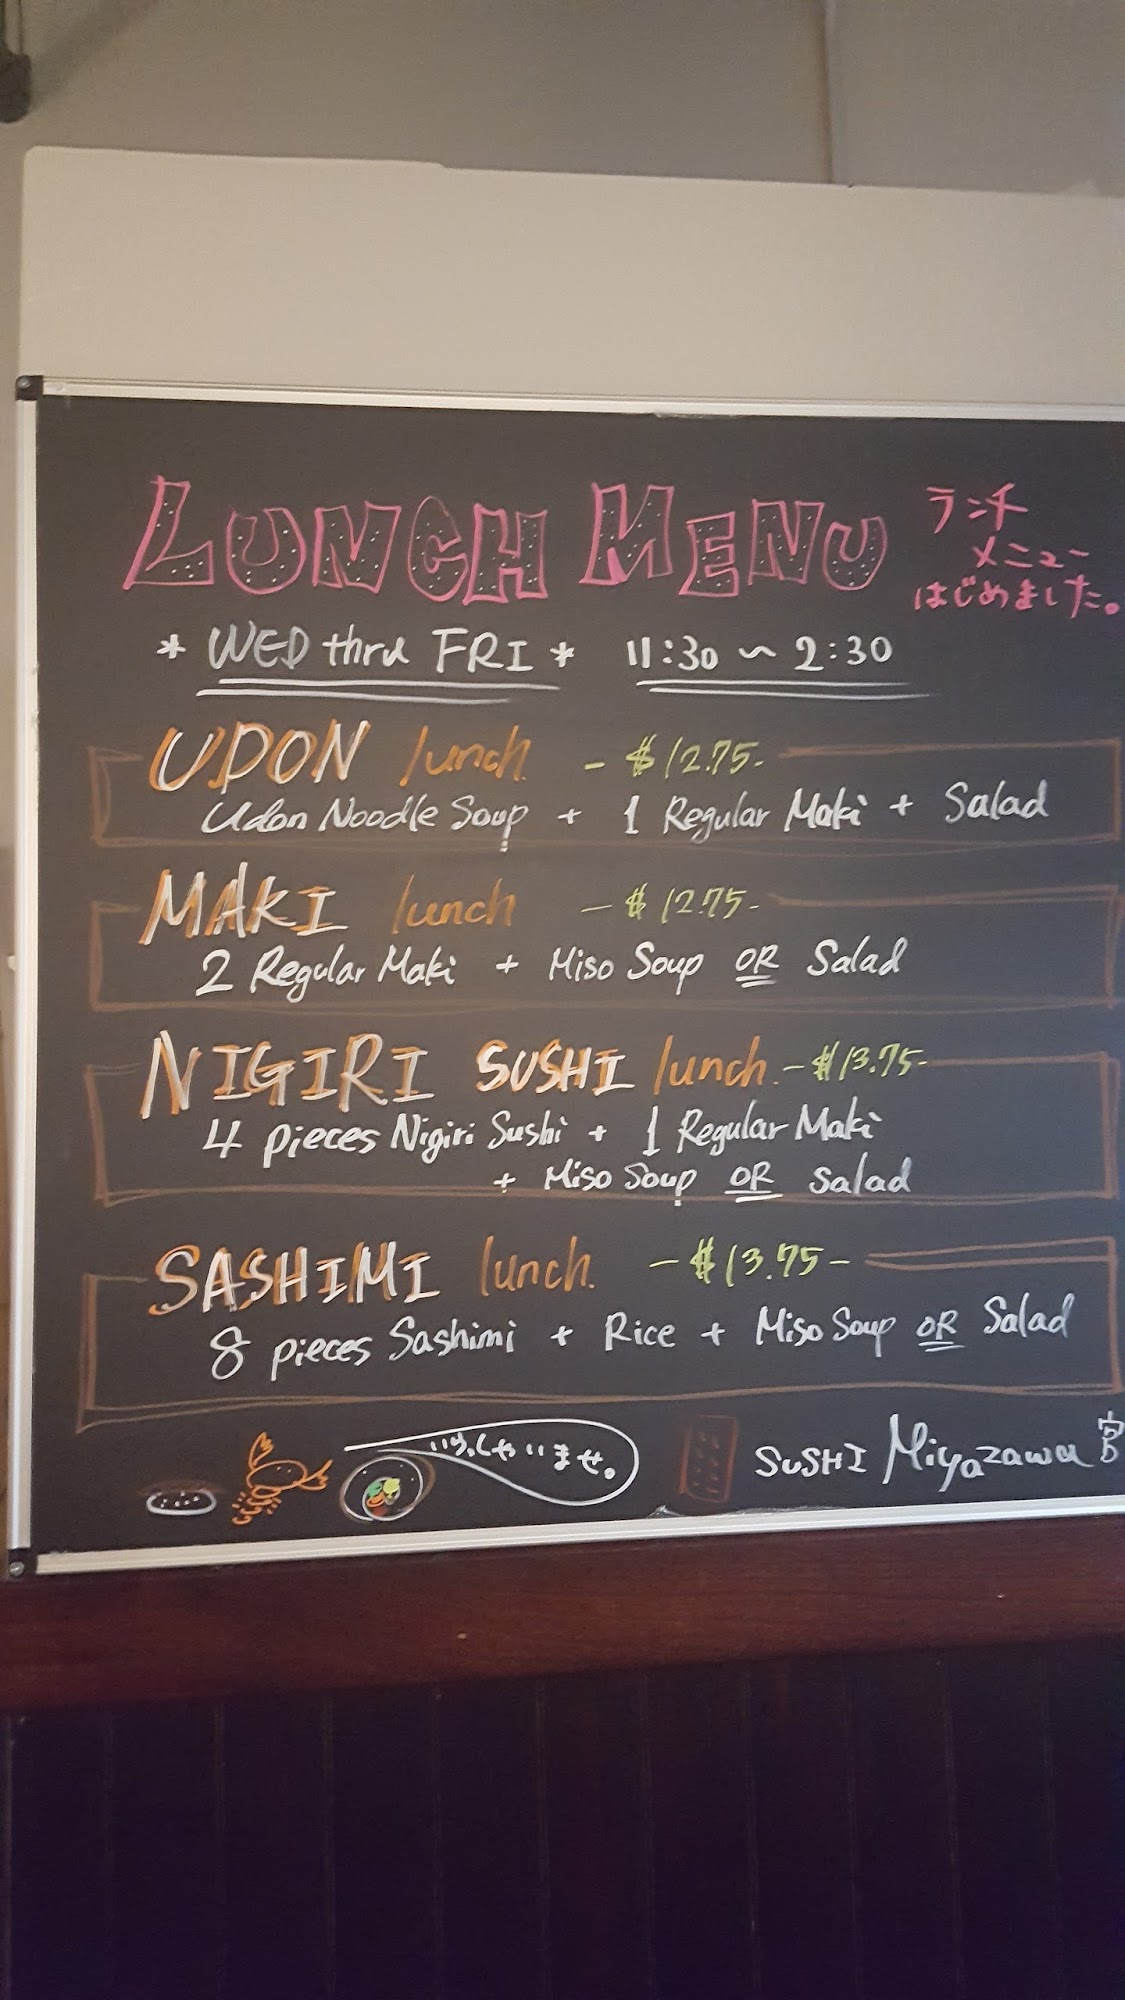 LUNCH MENU
ランチ
メニュー
はじめました。
* WED thru FRI * 11:30 ~ 2:30
UDON lunch - $12.75-
Udon Noodle Soup + 1 Regular Maki + Salad
MAKI lunch - $12.75-
2 Regular Maki + Miso Soup OR Salad
NIGIRI SUSHI lunch. - $13.75-
4 pieces Nigiri Sushi + 1 Regular Maki
+ Miso Soup OR Salad
SASHIMI lunch. - $13.75-
8 pieces Sashimi + Rice + Miso Soup OR Salad
いらっしゃいませ。
SUSHI Miyazawa 宮